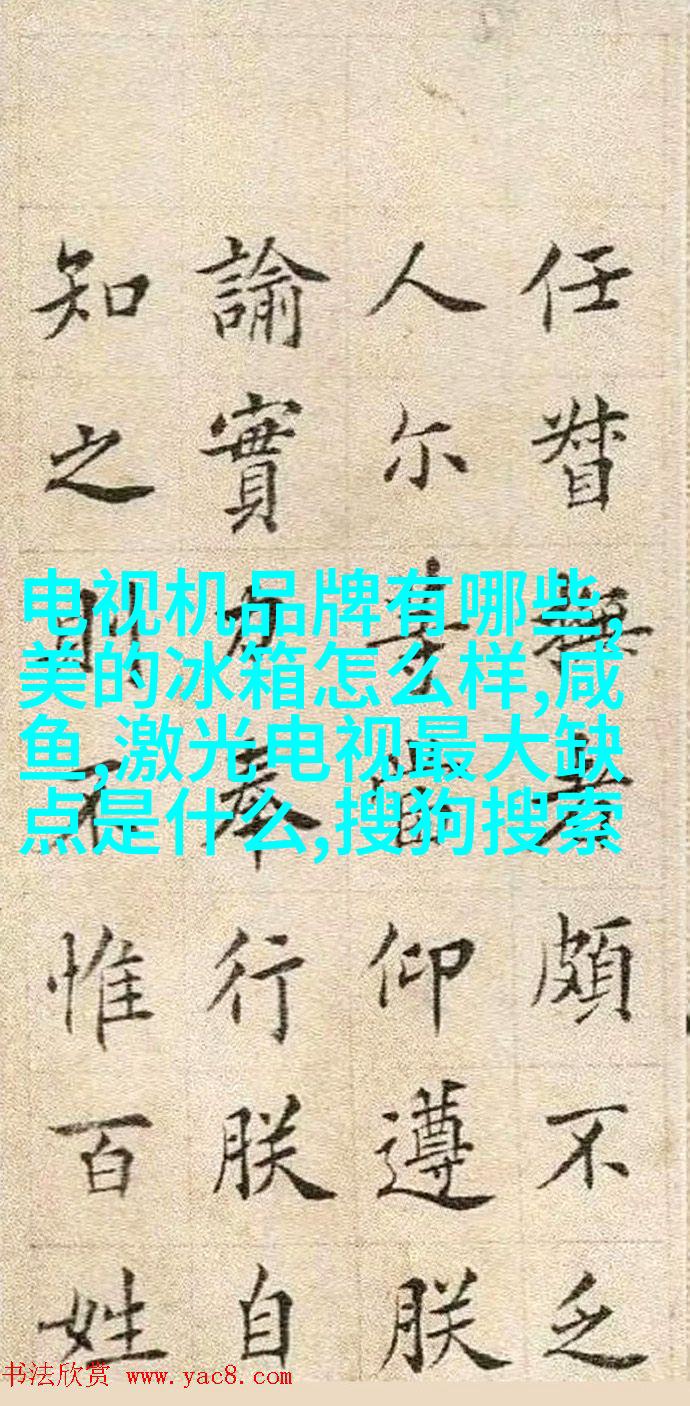 任督撫者頗不乏
人尔等皆仰遵朕
諭實力奉行朕自
知之則不惟百姓
电视机品牌有哪些,
美的冰箱怎么样,咸
鱼,激光电视最大缺
点是什么,搜狗搜索
书法欣赏 www.yac8.com